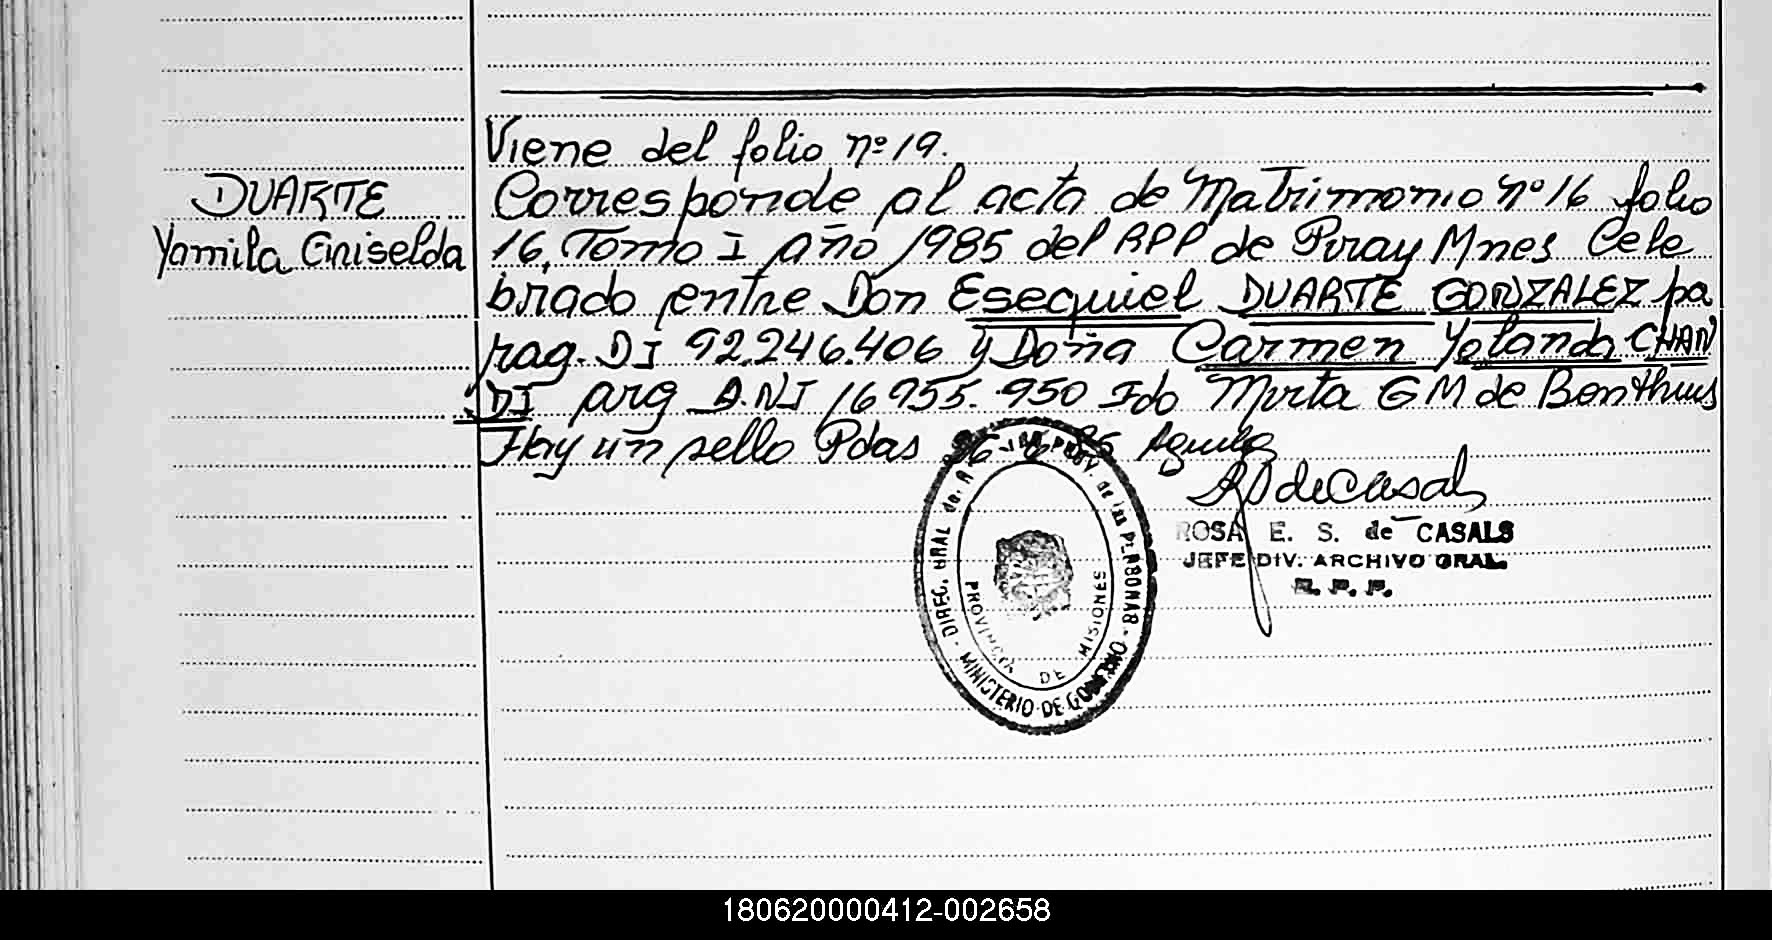 Viene del folio nº 19.
DUARTE
Yamila Griselda
Corresponde al acta de Matrimonio nº 16 folio
16, Tomo I año 1985 del RPP de Piray Mnes Cele
brado entre Don Esequiel DUARTE GONZALEZ pa
rag. DI 92.246.406 y Doña Carmen Yolanda CHAN
DI arg D.NI 16 955.950 Fdo Mirta G M de Benthuus
Hay un sello Pdas
RS de Casals
ROSA E. S. de CASALS
JEFE DIV. ARCHIVO GRAL.
R. P. P.
DIREC. GRAL de PROV. de las PERSONAS - MINISTERIO DE GOBIERNO
PROVINCIA DE MISIONES
180620000412-002658